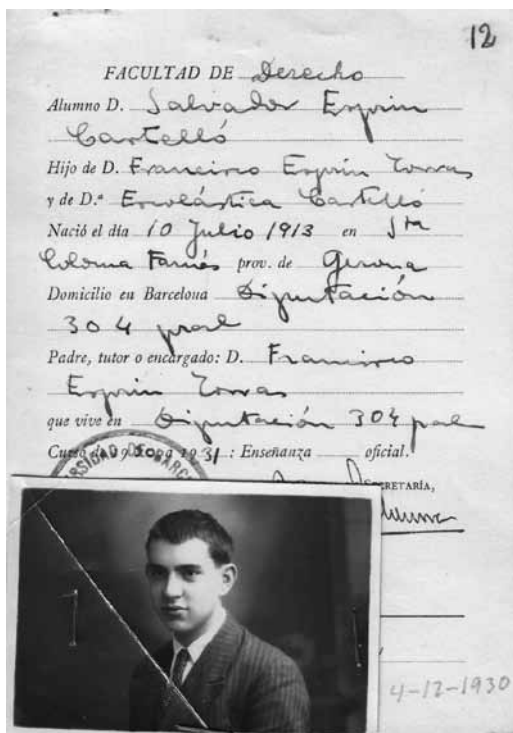 12
FACULTAD DE Derecho
Alumno D. Salvador Espriu
Castelló
Hijo de D. Francisco Espriu Torras
y de D.ª Escolástica Castelló
Nació el día 10 Julio 1913 en Sta
Coloma Farnés prov. de Gerona
Domicilio en Barcelona Diputación
304 pral
Padre, tutor o encargado: D. Francisco
Espriu Torras
que vive en Diputación 304 pral
Curso de 1931: Enseñanza oficial.
SECRETARÍA,
4-12-1930